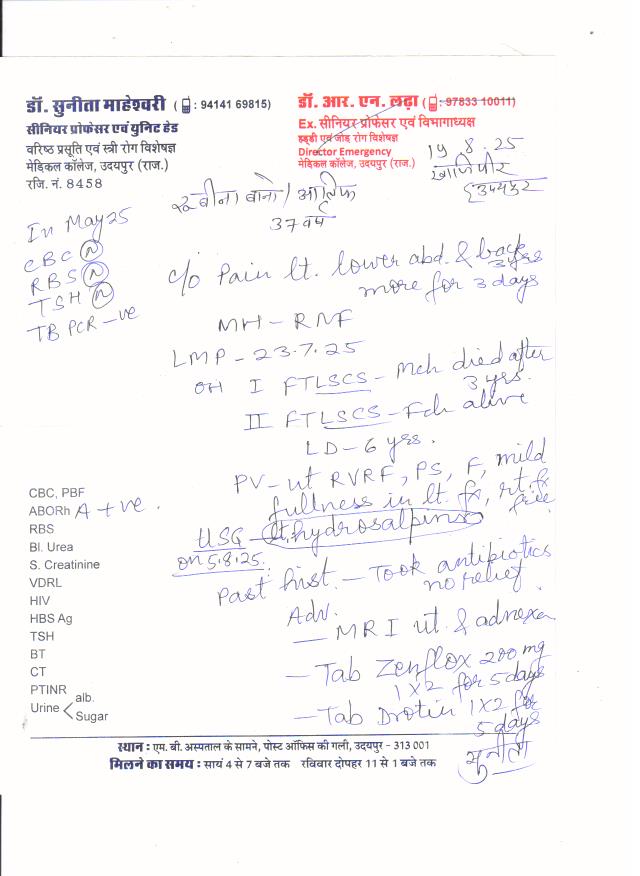 डॉ. सुनीता माहेश्वरी (: 94141 69815)
सीनियर प्रोफेसर एवं युनिट हेड
वरिष्ठ प्रसूति एवं स्त्री रोग विशेषज्ञ
मेडिकल कॉलेज, उदयपुर (राज.)
रजि. नं. 8458
डॉ. आर. एन. लढ़ा (: 97833 10011)
Ex. सीनियर प्रोफेसर एवं विभागाध्यक्ष
हड्डी एवं जोड़ रोग विशेषज्ञ
Director Emergency
मेडिकल कॉलेज, उदयपुर (राज.)
19.8.25
खांजीपीर
उदयपुर
रूबीना बानो / आसिफ
37 वर्ष
In May 25
CBC (N)
RBS (N)
TSH (N)
TB PCR -ve
c/o Pain lt. lower abd. & back 3 yrs
more for 3 days
MH - RNF
LMP - 23.7.25
OH I FTLSCS - Mch died after
3 yrs.
II FTLSCS - Fch alive
LD - 6 yrs.
PV - ut RVRF, PS, F, mild
fullness in lt. fx, rt. fx
free
USG - lt. hydrosalpinx
on 5.8.25.
Past hist. - Took antibiotics
no relief
Adv.
- MRI ut. & adnexa
- Tab Zenflox 200 mg
1 X 2 for 5 days
- Tab Drotin 1 X 2 for
5 days
सुनीता
CBC, PBF
ABORh A +ve.
RBS
Bl. Urea
S. Creatinine
VDRL
HIV
HBS Ag
TSH
BT
CT
PTINR
Urine < alb.
Sugar
स्थान : एम. बी. अस्पताल के सामने, पोस्ट ऑफिस की गली, उदयपुर - 313 001
मिलने का समय : सायं 4 से 7 बजे तक रविवार दोपहर 11 से 1 बजे तक